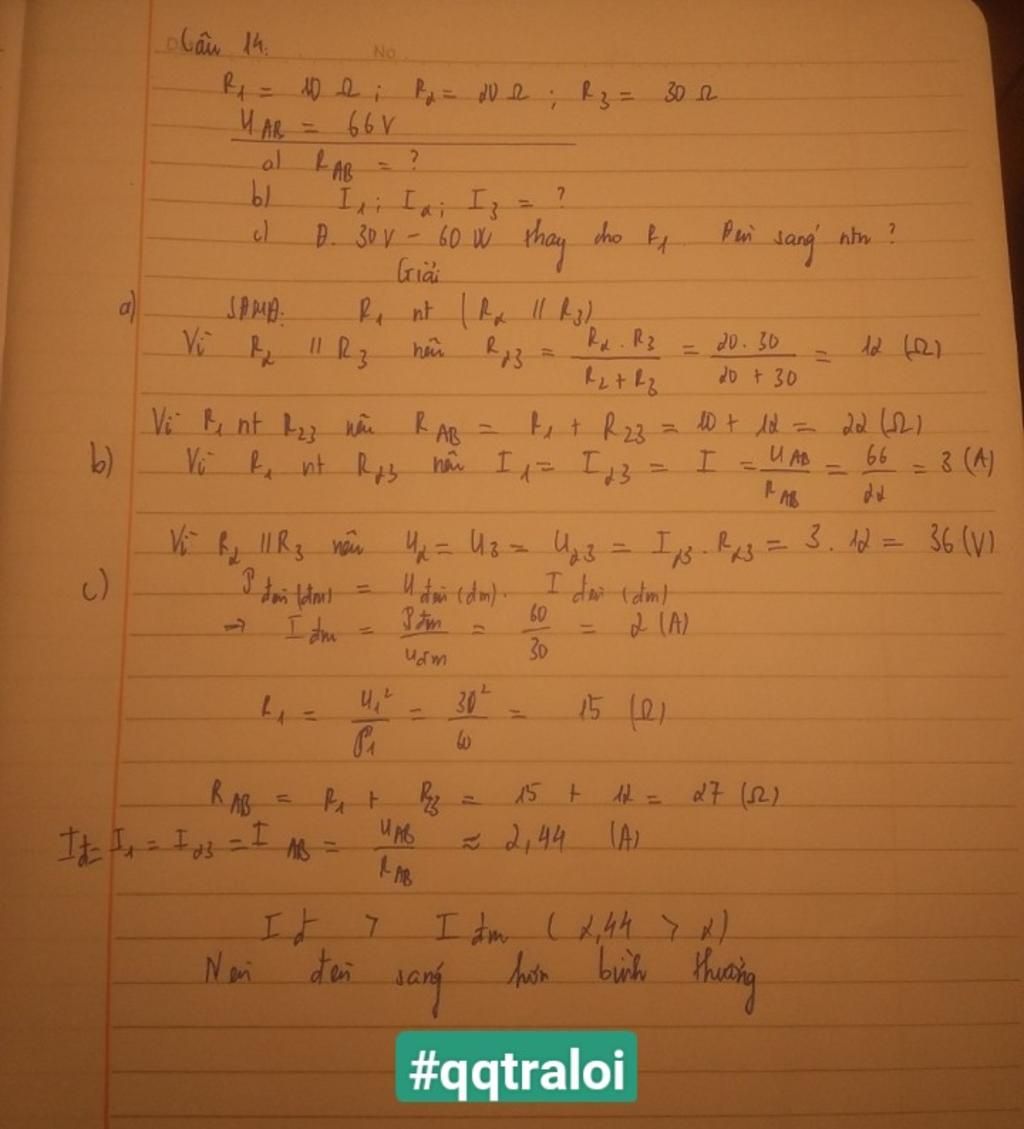 Câu 14.
No.
R1 = 10 Ω ; R2 = 20 Ω ; R3 = 30 Ω
UAB = 66V
a) RAB = ?
b) I1; I2; I3 = ?
c) Đ. 30V - 60W thay cho R1. Đèn sáng ntn ?
Giải
a) SĐMĐ: R1 nt (R2 // R3)
Vì R2 // R3 nên R23 = R2 . R3 / R2 + R3 = 20 . 30 / 20 + 30 = 12 (Ω)
Vì R1 nt R23 nên RAB = R1 + R23 = 10 + 12 = 22 (Ω)
b) Vì R1 nt R23 nên I1 = I23 = I = UAB / RAB = 66 / 22 = 3 (A)
Vì R2 // R3 nên U2 = U3 = U23 = I23 . R23 = 3 . 12 = 36 (V)
c) P đèn (đm) = U đèn (đm) . I đèn (đm)
→ I đm = Pđm / Uđm = 60 / 30 = 2 (A)
R1 = U1² / P1 = 30² / 60 = 15 (Ω)
RAB = R1 + R23 = 15 + 12 = 27 (Ω)
Iđ = I1 = I23 = I AB = UAB / RAB ≈ 2,44 (A)
Iđ > I đm ( 2,44 > 2)
Nên đèn sáng hơn bình thường
#qqtraloi